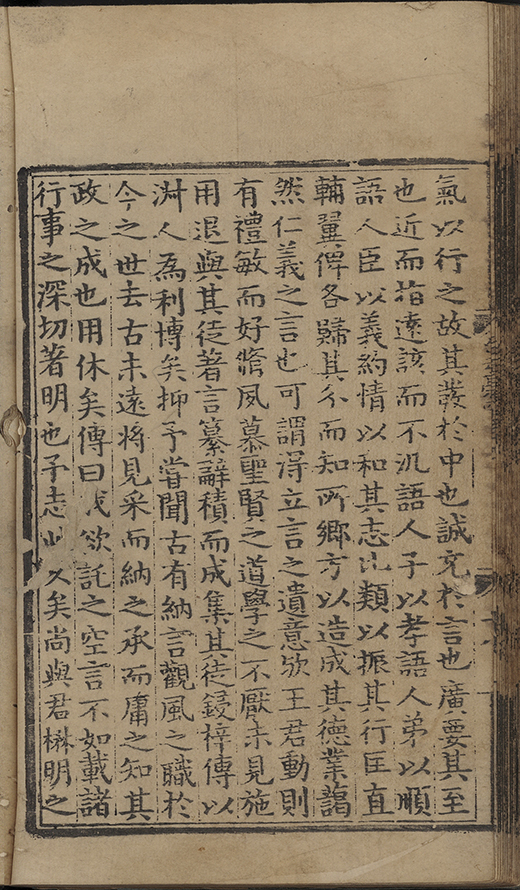 氣以行之故其發於中也誠充於言也廣要其至
也近而指遠該而不汎語人子以孝語人弟以順
語人臣以義約情以和其志比類以振其行匡直
輔翼俾各歸其分而知所鄉方以造成其德業藹
然仁義之言也可謂淂立言之遺意欤王君動則
有禮敏而好脩夙慕聖賢之道學之不厭未見施
用退與其徒著言纂辭積而成集其徒鋟梓傳以
淑人為利博矣抑予甞聞古有納言觀風之職於
今之世去古未遠将見采而納之承而庸之知其
政之成也用休矣傳曰我欲託之空言不如載諸
行事之深切著明也予志此久矣尚與君楙明之